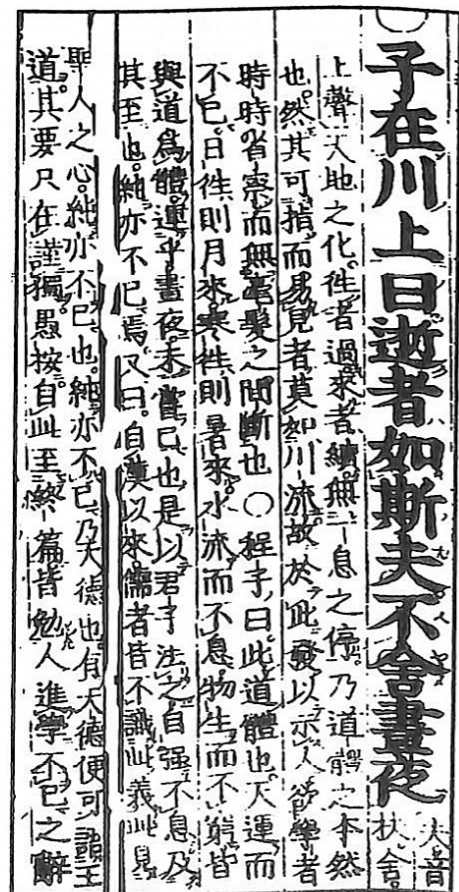 ○子在川上曰逝者如斯夫不舍晝夜 夫音扶舍
上聲天地之化徃者過來者續無一息之停乃道體之本然
也然其可指而易見者莫如川流故於此發以示人欲學者
時時省察而無毫髮之間斷也○程子曰此道體也天運而
不已日徃則月來寒徃則暑來水流而不息物生而不窮皆
與道爲體運乎晝夜未嘗已也是以君子法之自强不息及
其至也純亦不已焉又曰自漢以來儒者皆不識此義此見
聖人之心純亦不已也純亦不已乃天德也有天德便可語王
道其要只在謹獨愚按自此至終篇皆勉人進學不已之辭